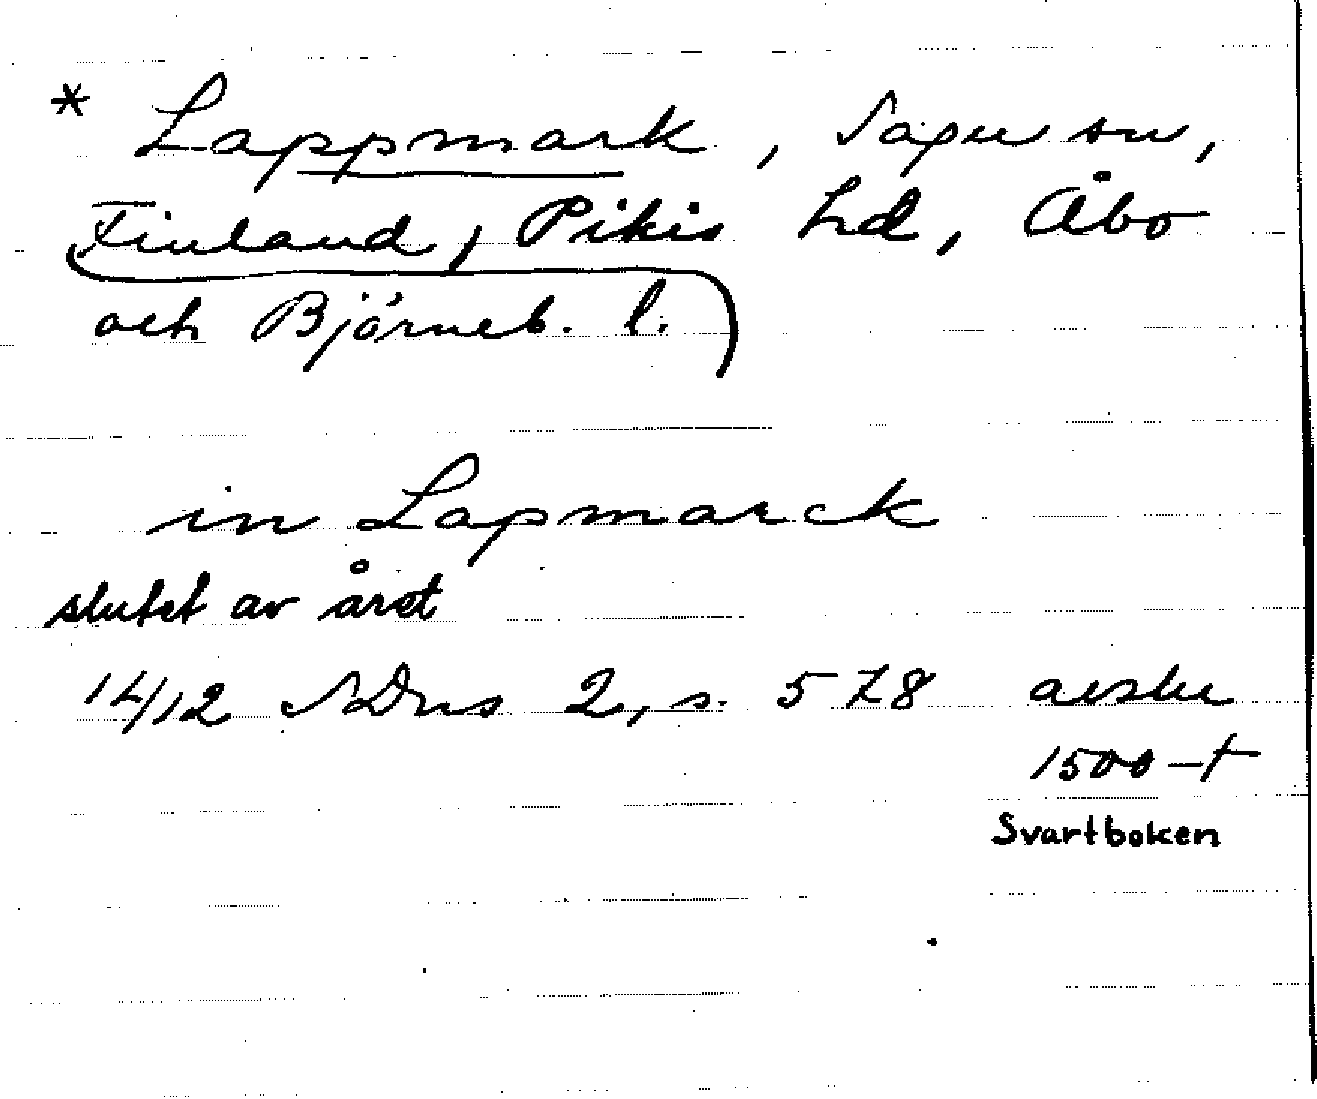 * Lappmark, Sagu sn,
Finland, Pikis hd, Åbo
och Björneb. l.
in Lapmarck
slutet av året
14/12 SDns 2, s. 578 avskr
1500-t
Svartboken